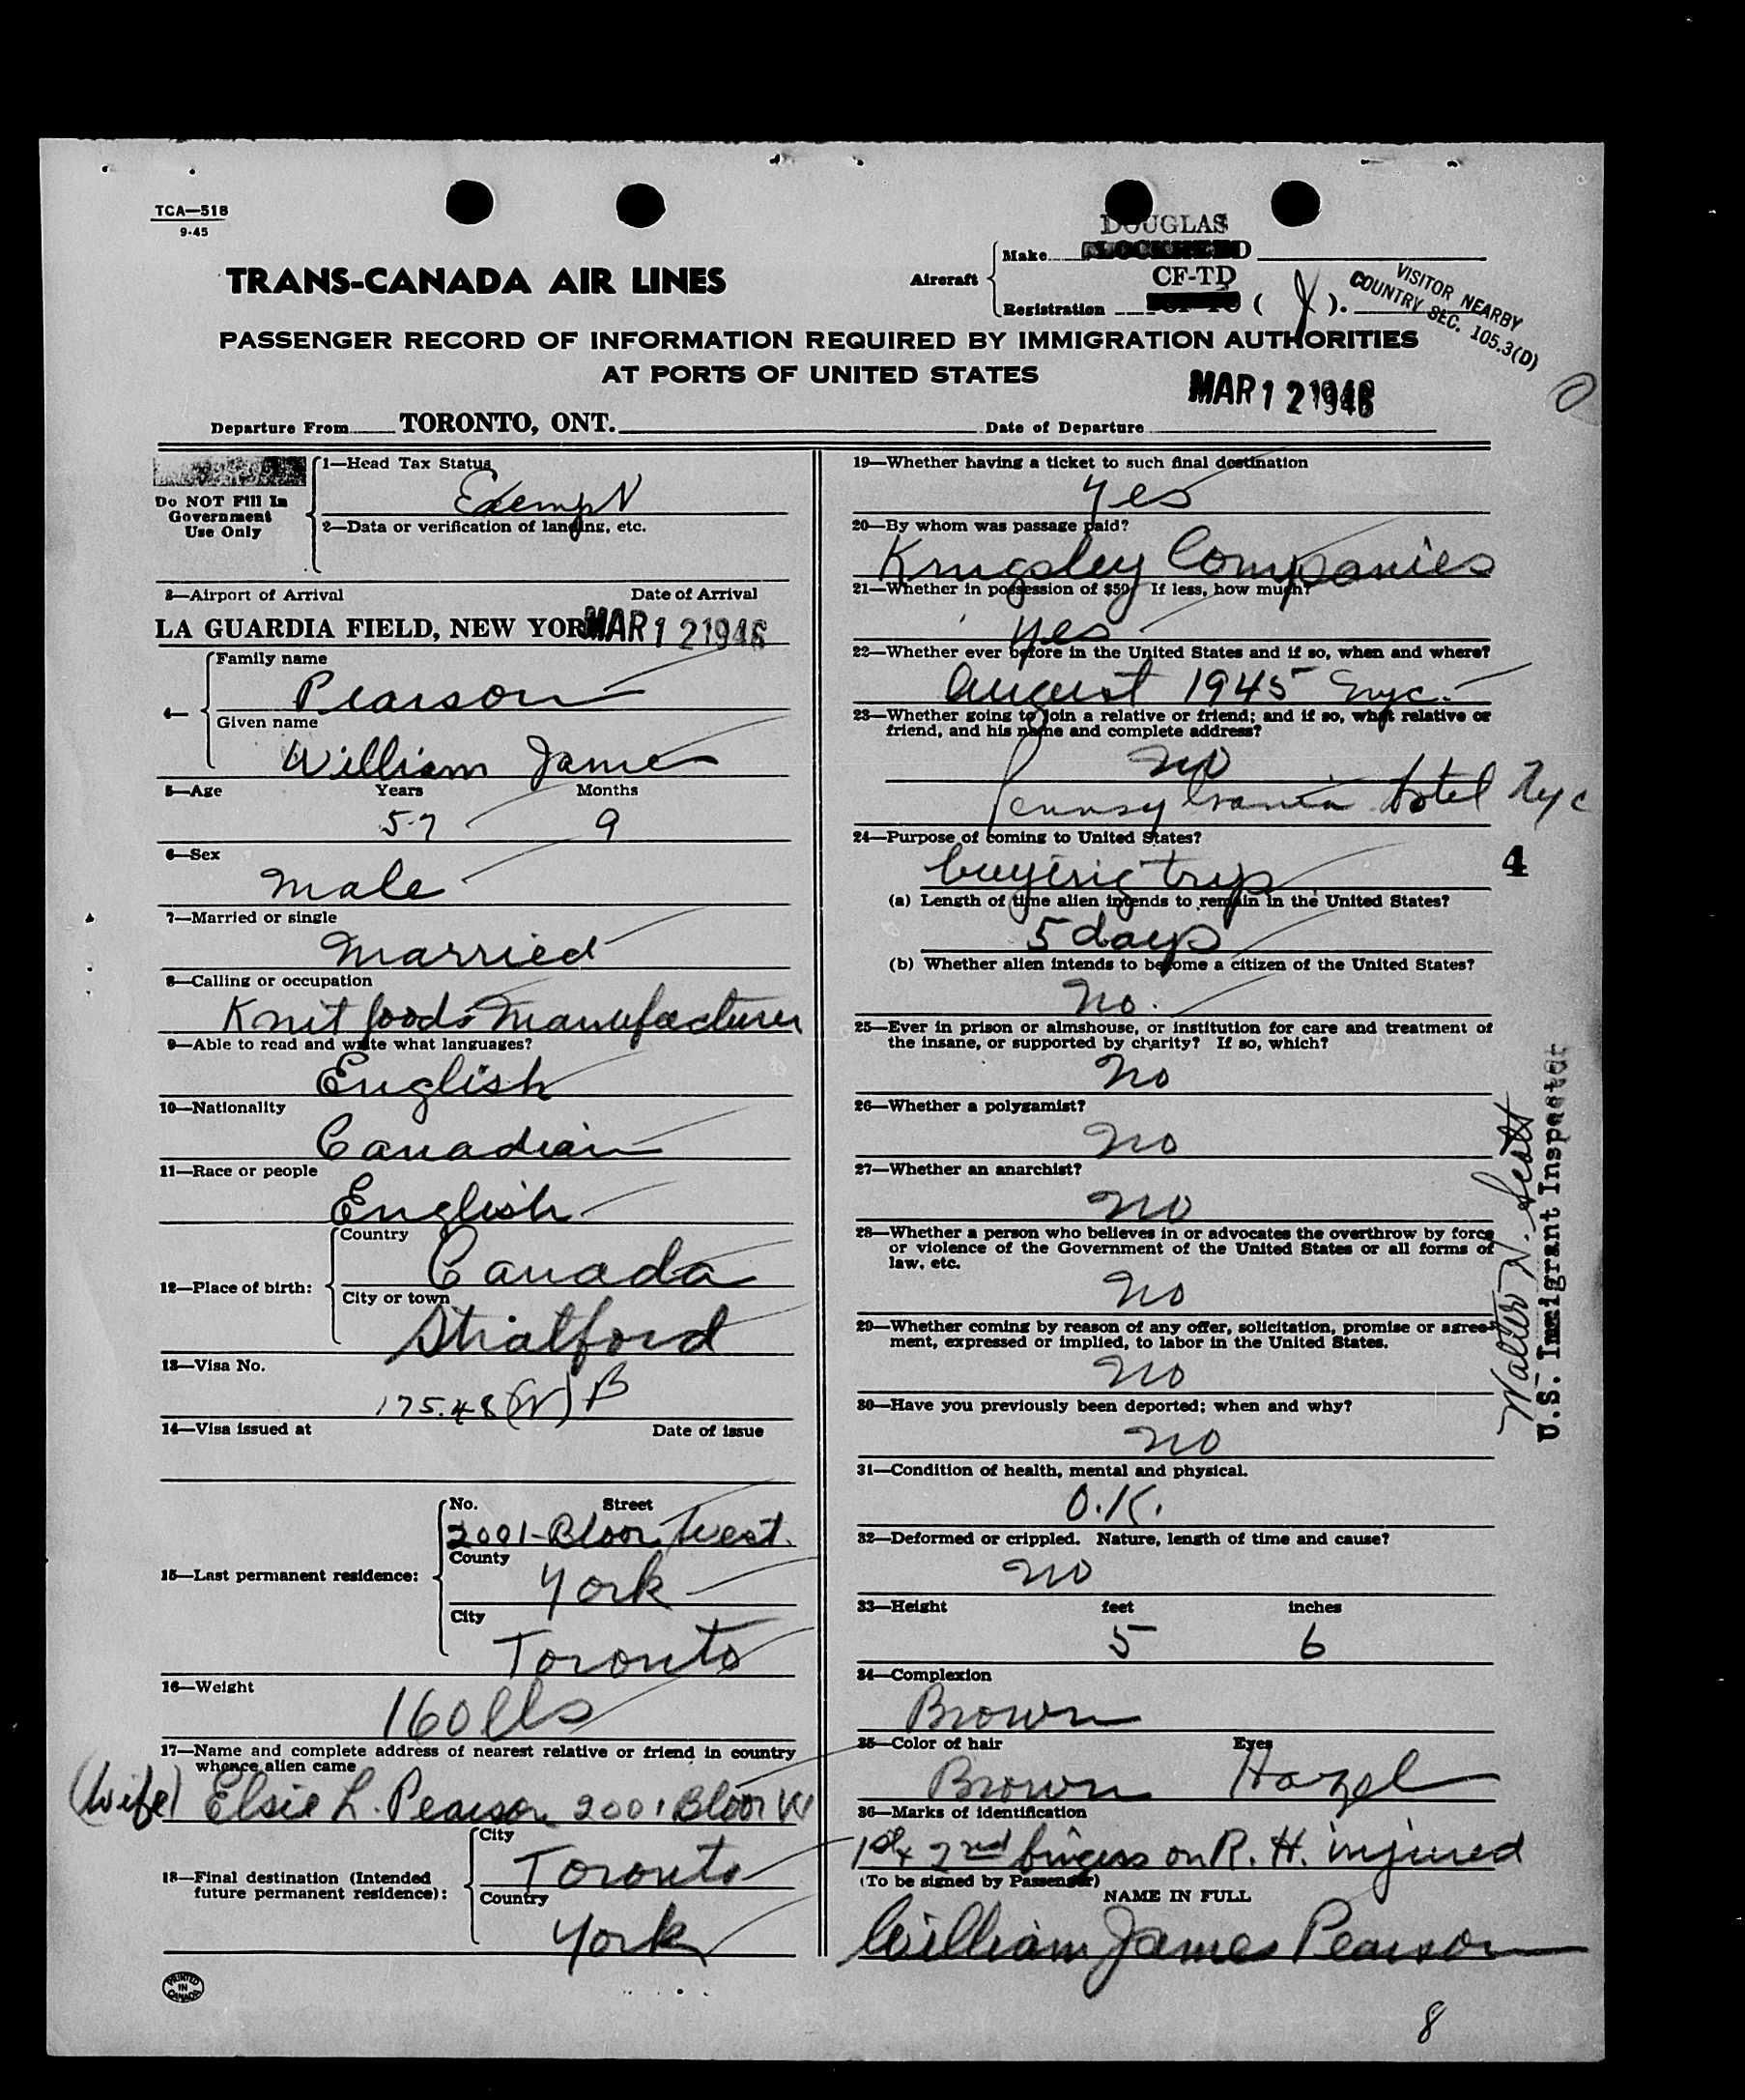 TCA—518
9-45
DOUGLAS
TRANS-CANADA AIR LINES
Aircraft
Make
CF-TD
Registration ( ).
VISITOR NEARBY
COUNTRY SEC. 105.3(D)
PASSENGER RECORD OF INFORMATION REQUIRED BY IMMIGRATION AUTHORITIES
AT PORTS OF UNITED STATES
MAR 12 1946
Departure From TORONTO, ONT. Date of Departure
Do NOT Fill In
Government
Use Only
1—Head Tax Status
Exempt
2—Data or verification of landing, etc.
3—Airport of Arrival Date of Arrival
LA GUARDIA FIELD, NEW YORK MAR 12 1946
4—
Family name
Pearson
Given name
William James
5—Age Years Months
57 9
6—Sex
Male
7—Married or single
Married
8—Calling or occupation
Knit Goods Manufacturer
9—Able to read and write what languages?
English
10—Nationality
Canadian
11—Race or people
English
12—Place of birth:
Country
Canada
City or town
Stratford
13—Visa No.
175.48 (V) B
14—Visa issued at Date of issue
15—Last permanent residence:
No. Street
2001 - Bloor West.
County
York
City
Toronto
16—Weight
160 lbs
17—Name and complete address of nearest relative or friend in country
whence alien came
(Wife) Elsie L. Pearson 2001 Bloor W
18—Final destination (Intended
future permanent residence):
City
Toronto
Country
York
PRINTED
IN
CANADA
19—Whether having a ticket to such final destination
Yes
20—By whom was passage paid?
Kingsley Companies
21—Whether in possession of $50. If less, how much?
Yes
22—Whether ever before in the United States and if so, when and where?
August 1945 Nyc.
23—Whether going to join a relative or friend; and if so, what relative or
friend, and his name and complete address?
No
Pennsylvania Hotel Nyc
24—Purpose of coming to United States?
buying trip
4
(a) Length of time alien intends to remain in the United States?
5 days
(b) Whether alien intends to become a citizen of the United States?
No.
25—Ever in prison or almshouse, or institution for care and treatment of
the insane, or supported by charity? If so, which?
No
26—Whether a polygamist?
No
27—Whether an anarchist?
No
28—Whether a person who believes in or advocates the overthrow by force
or violence of the Government of the United States or all forms of
law, etc.
No
29—Whether coming by reason of any offer, solicitation, promise or agree-
ment, expressed or implied, to labor in the United States.
No
30—Have you previously been deported; when and why?
No
31—Condition of health, mental and physical.
O.K.
32—Deformed or crippled. Nature, length of time and cause?
No
33—Height feet inches
5 6
34—Complexion
Brown
35—Color of hair Eyes
Brown Hazel
36—Marks of identification
1st & 2nd fingers on R. H. injured
(To be signed by Passenger)
NAME IN FULL
William James Pearson
8
Walter N. Scott
U.S. Immigrant Inspector